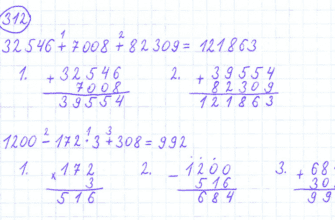 312
32546 + 7008 + 82309 = 121863
1 2
1. + 32546
7008
39554
2. + 39554
82309
121863
1200 - 172 · 3 + 308 = 992
2 1 3
1. × 172
3
516
2. - 1200
516
684
3. + 68
30
99